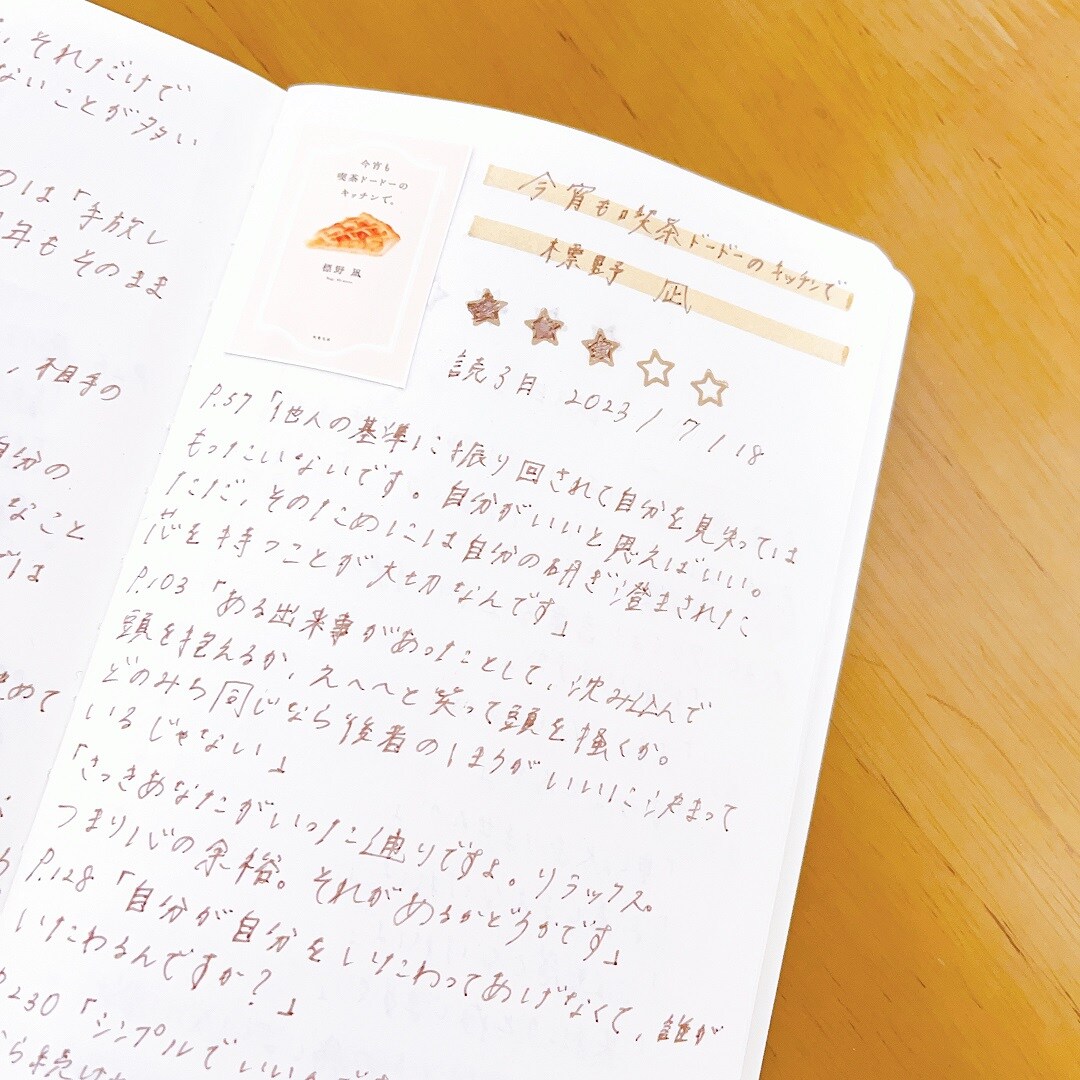 、それだけで
ないことが多い
のは「手放し
年もそのまま
、相手の
自分の
なこと
では
決めて
今宵も
喫茶ドードーの
キッチンで。
標野 凪
今宵も喫茶ドードーのキッチンで
標野 凪
読了日 2023/7/18
P.57「他人の基準に振り回されて自分を見失っては
もったいないです。自分がいいと思えばいい。
ただ、そのためには自分の研ぎ澄まされた
芯を持つことが大切なんです」
P.103「ある出来事があったとして、沈み込んで
頭を抱えるか、えへへと笑って頭を掻くか。
どのみち同じなら後者のほうがいいに決まって
いるじゃない」
「さっきあなたがいった通りですよ。リラックス。
つまり心の余裕。それがあるかどうかです」
P.128「自分が自分をいたわってあげなくて、誰が
いたわるんですか?」
P.230「シンプルでいいんです
ら続け